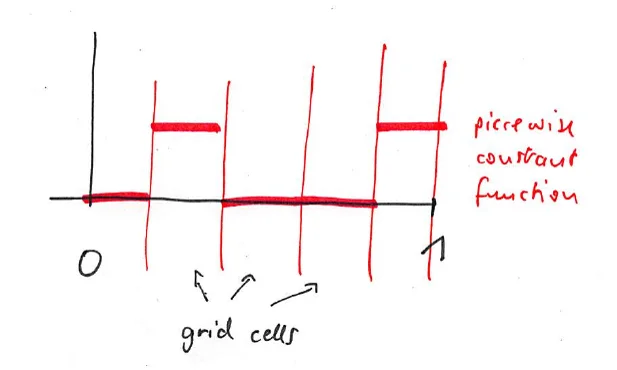 piecewise
constant
function
0
1
grid cells